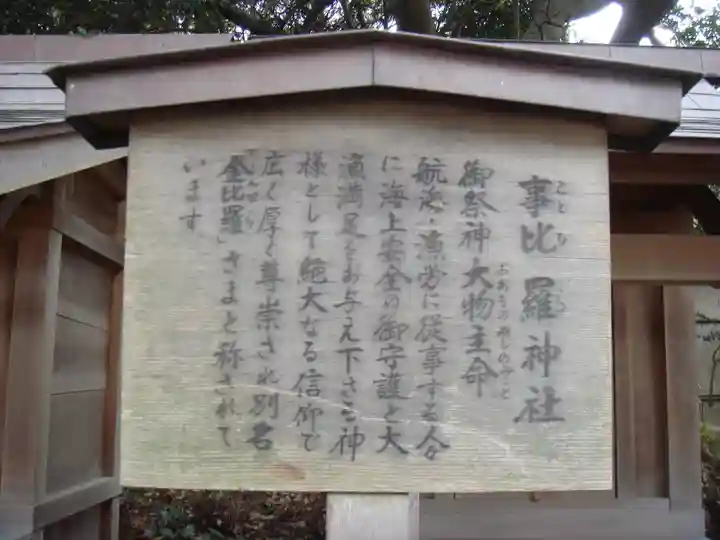 事比羅神社
ことひら
御祭神大物主命
おおものぬしのみこと
航海・漁労に従事する人々
に海上安全の御守護と大
漁満足をお与え下さる神
様として絶大なる信仰で
広く厚く尊崇され別名
「金比羅」さまと称されて
こんぴら
います。